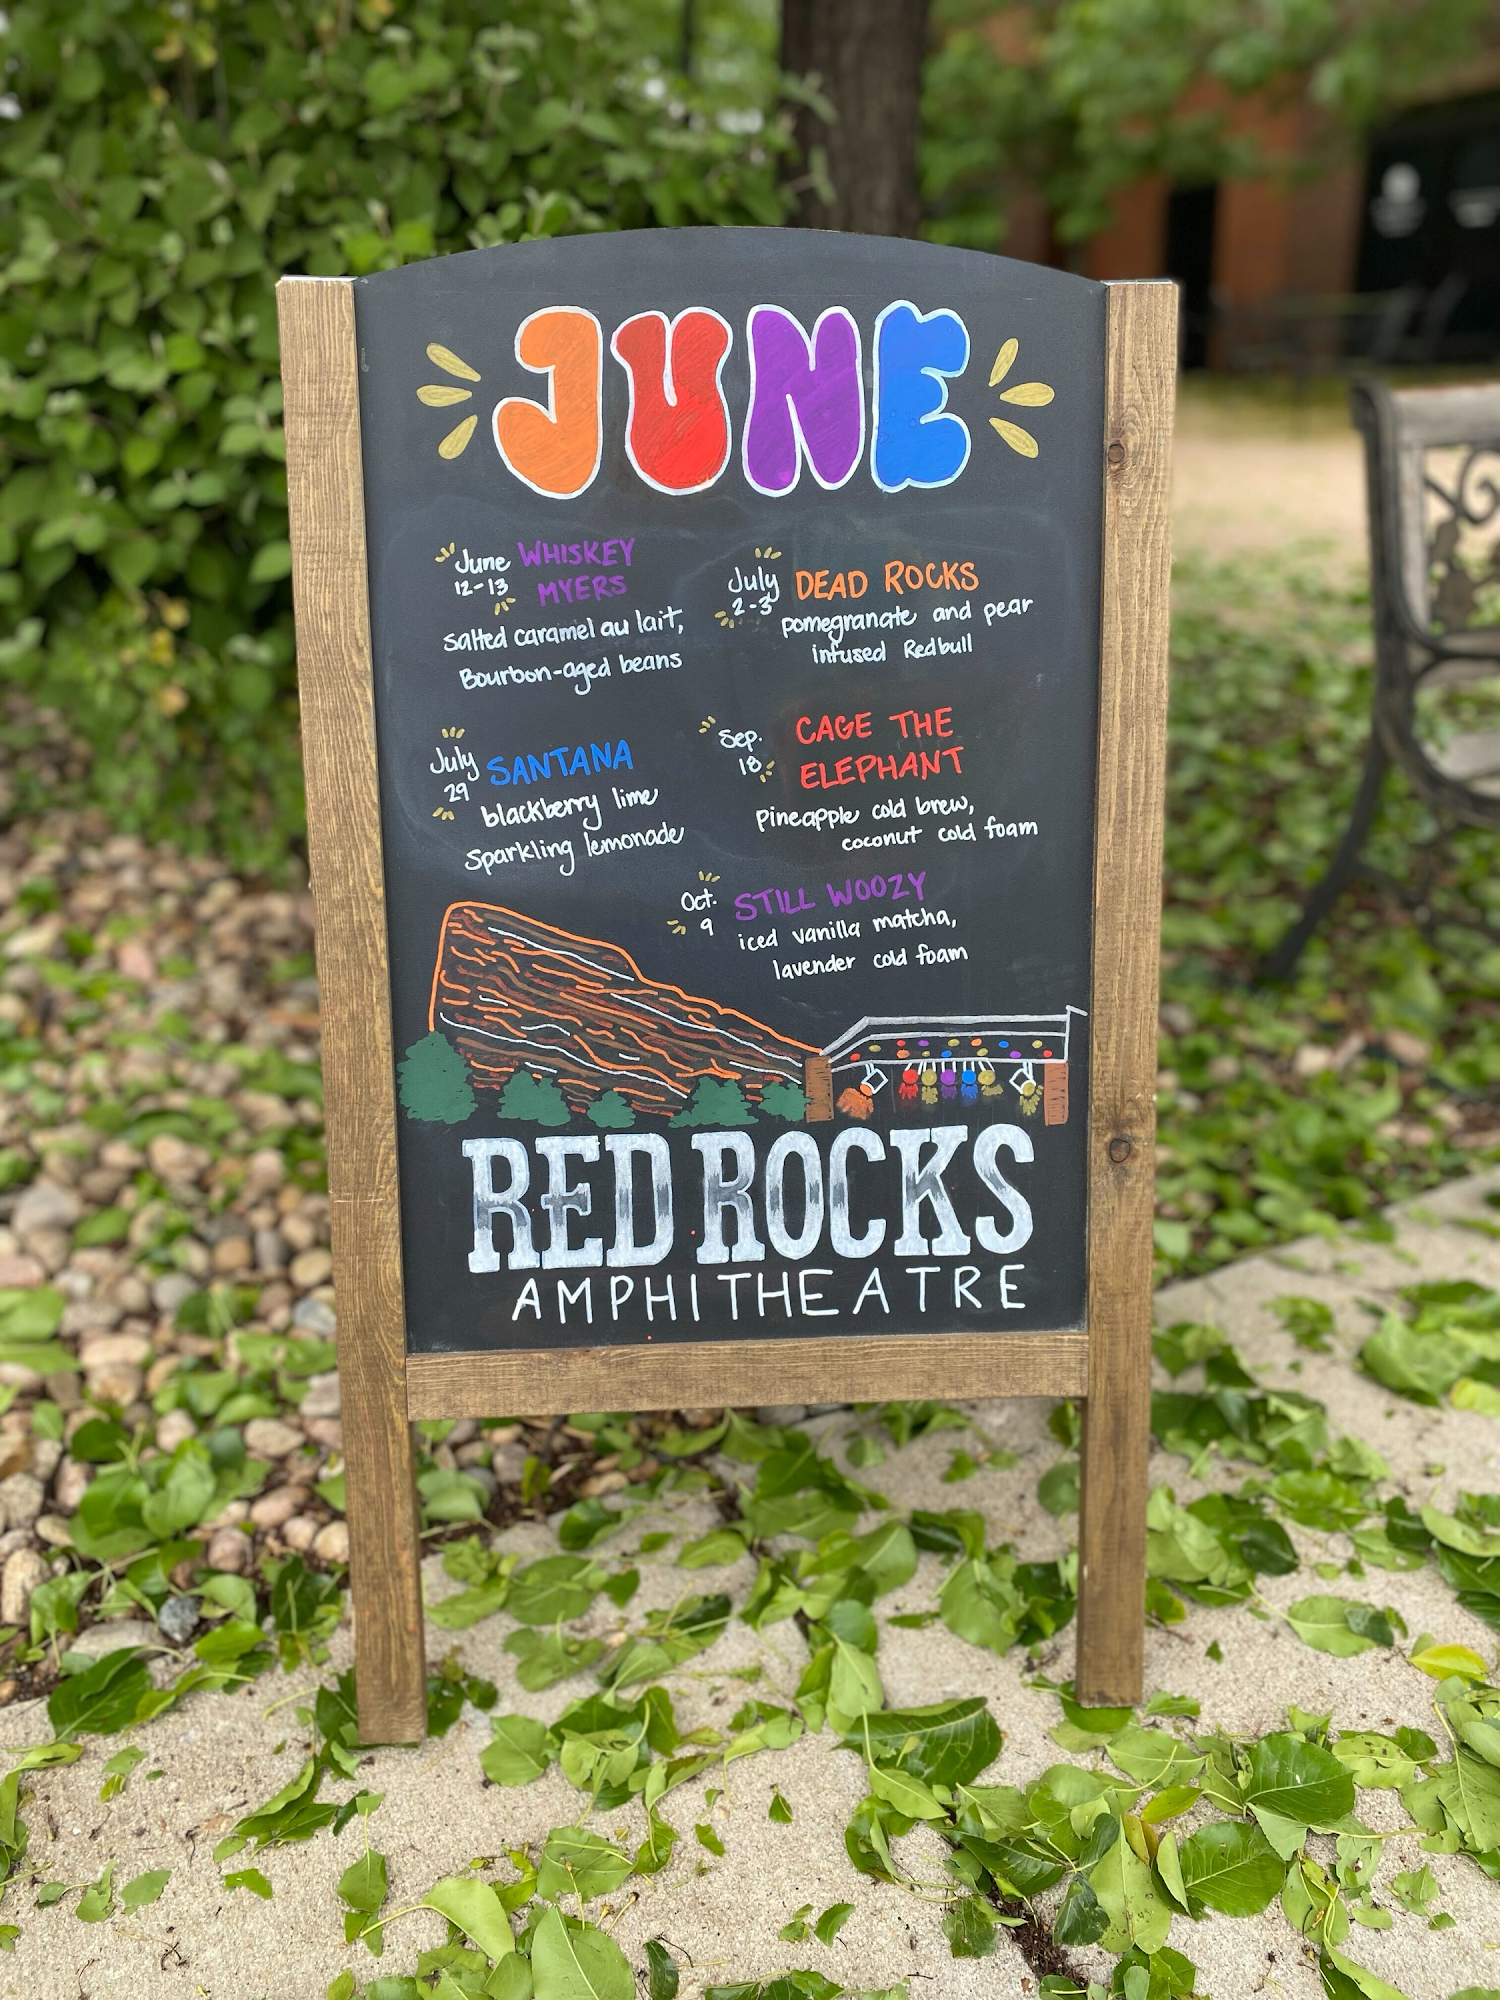 JUNE
June WHISKEY
12-13 MYERS
salted caramel au lait,
Bourbon-aged beans
July DEAD ROCKS
2-3
pomegranate and pear
infused Redbull
July SANTANA
29
blackberry lime
sparkling lemonade
Sep. CAGE THE
18 ELEPHANT
pineapple cold brew,
coconut cold foam
Oct. STILL WOOZY
9
iced vanilla matcha,
lavender cold foam
RED ROCKS
AMPHITHEATRE